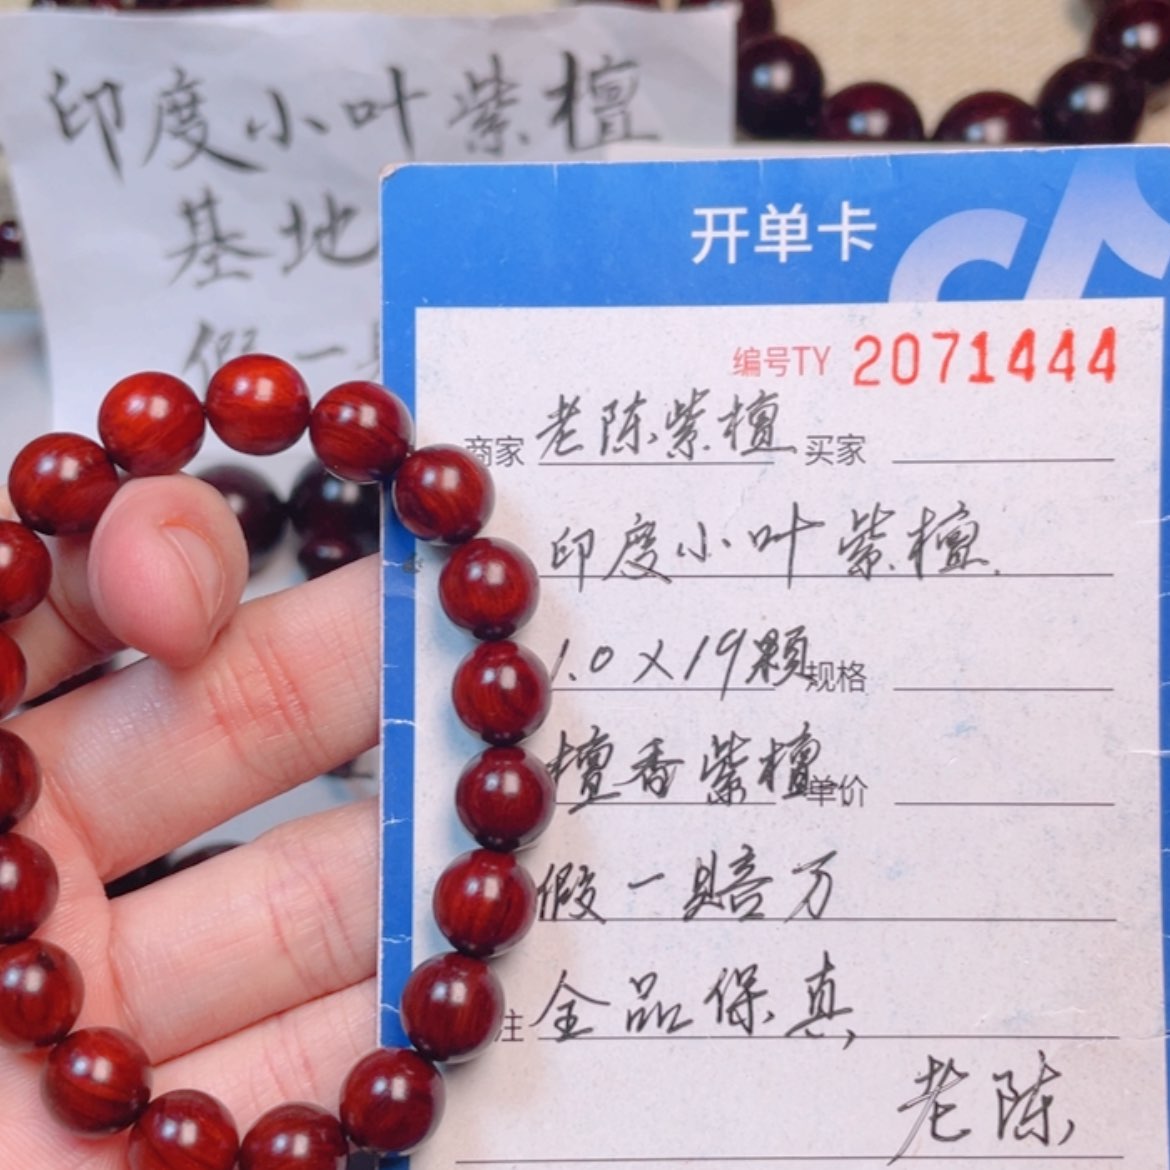 印度小叶紫檀
基地
假一
开单卡
编号TY 2071444
商家 老陈紫檀 买家
印度小叶紫檀
1.0×19顆 规格
檀香紫檀 单价
假一赔万
注 全品保真
老陈